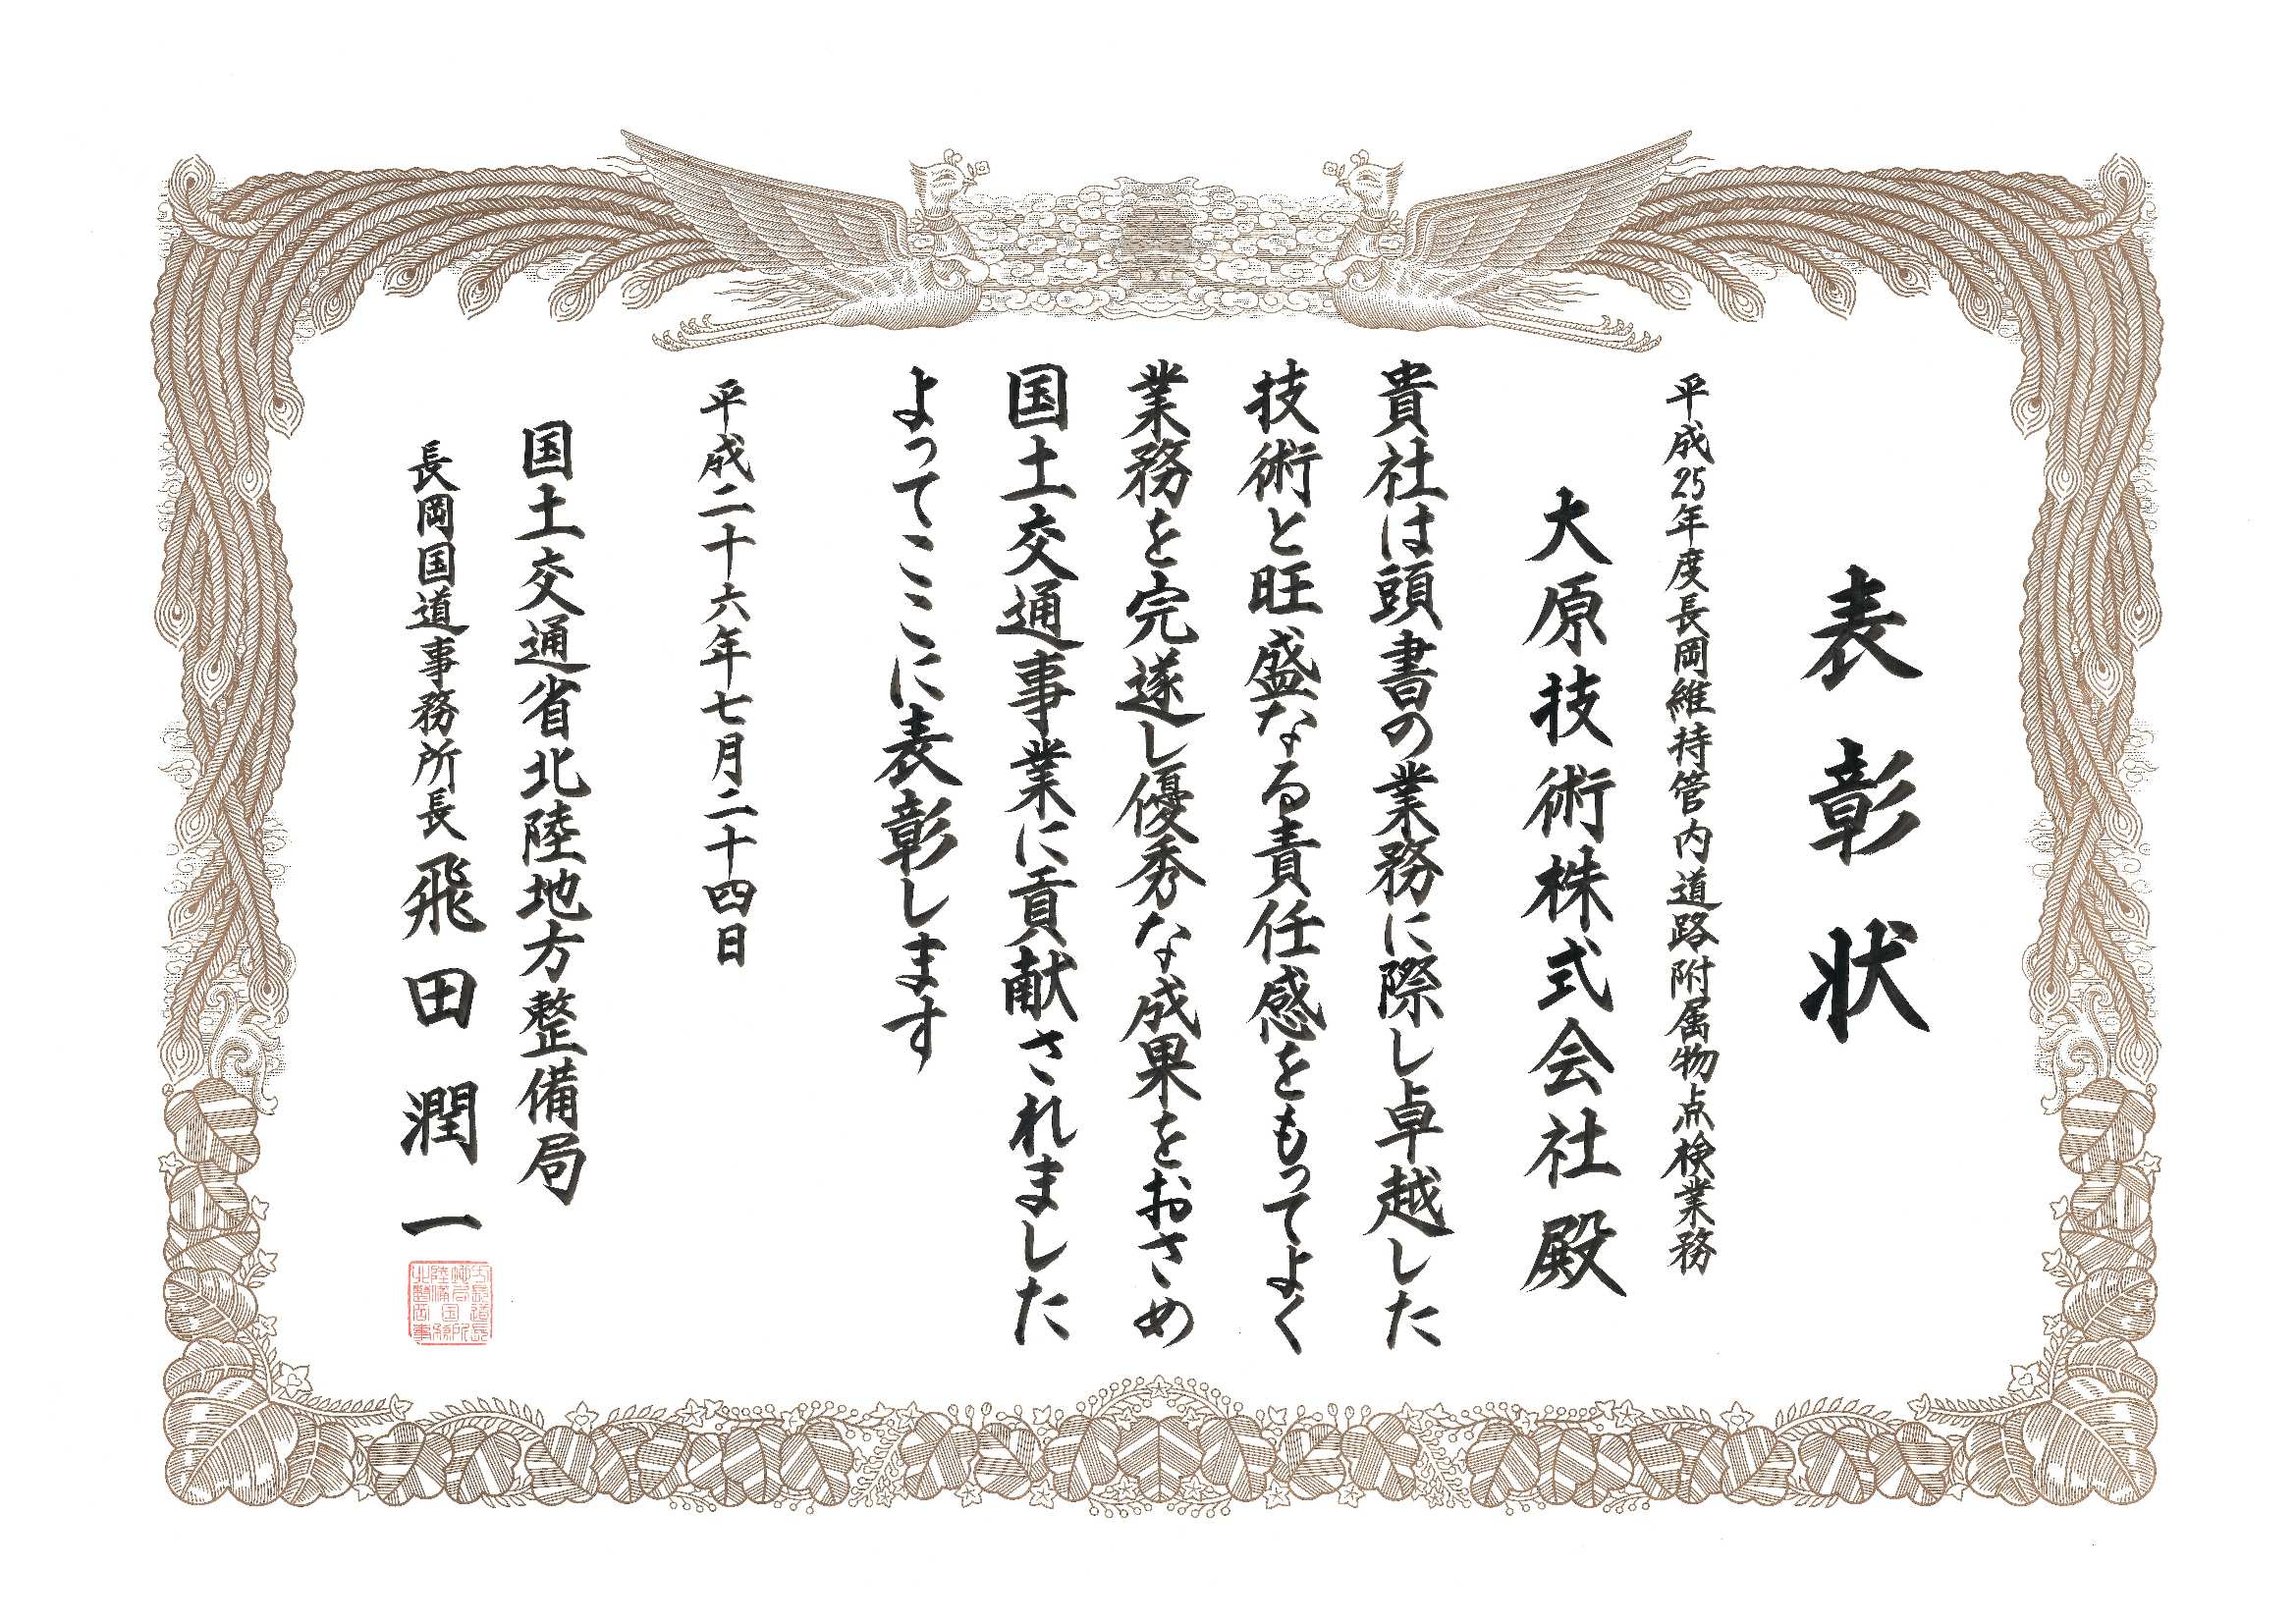 表彰状
平成25年度長岡維持管内道路附属物点検業務
大原技術株式会社殿
貴社は頭書の業務に際し卓越した
技術と旺盛なる責任感をもってよく
業務を完遂し優秀な成果をおさめ
国土交通事業に貢献されました
よってここに表彰します
平成二十六年七月二十四日
国土交通省北陸地方整備局
長岡国道事務所長 飛田潤一